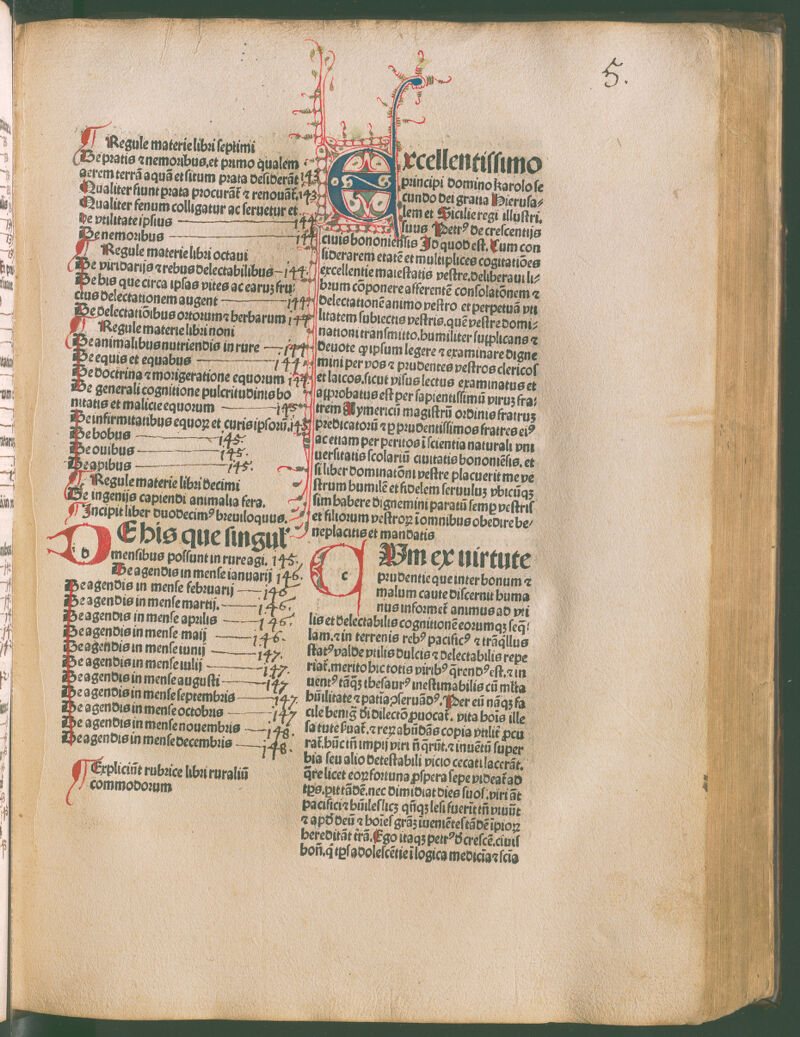 5.
Regule materie libri septimi
De pratis ⁊ nemoribus. et primo qualem
aerem terrā aquā et situm prata desiderāt 143
Qualiter fiunt prata procurāt̄ ⁊ renouāt̄. 143
Qualiter fenum colligatur ac seruetur et
de vtilitate ipsius 144
De nemoribus 144
Regule materie libri octaui
De viridarijs ⁊ rebus delectabilibus 144.
De his que circa ipsas vites ac earuȝ fru⸗
ctus delectationem augent 144
De delectatiōibus ortorum ⁊ herbarum 144
Regule materie libri noni
De animalibus nutriendis in rure 144
De equis et equabus 144
De doctrina ⁊ morigeratione equorum 144
De generali cognitione pulcritudinis bo
nitatis et malicie equorum 145
De infirmitatibus equoꝝ et curis ipsorū. 145
De bobus 145.
De ouibus 145.
De apibus 145.
Regule materie libri decimi
De ingenijs capiendi animalia fera.
Incipit liber duodecimꝰ breuiloquus.
DE his que singul̄
mensibus possunt in rure agi. 145.
De agendis in mense ianuarij 146.
De agendis in mense februarij 146
De agendis in mense martij. 146.
De agendis in mense aprilis 146.
De agendis in mense maij 146.
De agendis in mense iunij 147.
De agendis in mense iulij 147.
De agendis in mense augusti 147
De agendis in mense septembris 147.
De agendis in mense octobris 147
De agendis in mense nouembris 148.
De agendis in mense decembris 148.
Expliciūt rubrice libri ruraliū
commodorum
Excellentissimo
principi domino karolo se
cundo dei gratia Hierusa⸗
lem et Sicilie regi illustri.
suus Petrꝰ de crescentijs
ciuis bononiēsis Id quod est. Cum con
siderarem etatē et multiplices cogitatiōes
excellentie maiestatis vestre. deliberaui li⸗
brum cōponere afferentē consolatōnem ⁊
delectationē animo vestro et perpetuā vti
litatem subiectis vestris. quē vestre domi⸗
nationi transmitto. humiliter supplicans ⁊
deuote ꝙ ipsum legere ⁊ examinare digne
mini per vos ⁊ prudentes vestros clericos
et laicos. sicut visus lectus examinatus et
approbatus est per sapientissimū viruȝ fra⸗
trem Aymericū magistrū ordinis fratruȝ
predicatorū ⁊ ꝑ prudentissimos fratres eiꝰ
ac etiam per peritos ī scientia naturali vni
uersitatis scolariū ciuitatis bononiēsis. et
si liber dominatōni vestre placuerit me ve
strum humilē et fidelem seruuluȝ vbicūqȝ
sim habere dignemini paratū semꝑ vestris
et filiorum vestroꝝ ī omnibus obedire be⸗
neplacitis et mandatis
CUm ex uirtute
prudentie que inter bonum ⁊
malum caute discernit huma
nus informet̄ animus ad vti
lis et delectabilis cognitionē eorumqȝ seq̄⸗
lam. ⁊ in terrenis rebꝰ pacificꝰ ⁊ trāq̄llus
statꝰ valde vtilis dulcis ⁊ delectabilis repe
riat̄. merito hic totis viribꝰ q̄rendꝰ est. ⁊ in
uentꝰ tāqȝ thesaurꝰ inestimabilis cū mlta
hūilitate ⁊ patiā ꝓseruādꝰ. Per eū nāqȝ fa
cile benigꝰ di dilectō ꝓuocat̄. vita hois ille
sa tute fruat̄. ⁊ reꝝ abūdās copia vtilit̄ ꝓcu
rat̄. hūc tn̄ impij viri n̄ q̄rūt. ⁊ inuētū super
bia seu alio detestabili vicio cecati lacerāt.
Q̄re licet eoꝝ fortuna ꝓspera sepe videat̄ ad
tp̄s. vix tādē. nec dimidiāt dies suos. viri āt
pacifici ⁊ hūiles licȝ qn̄qȝ lesi fuerīt tn̄ viuūt
⁊ apd̄ deū ⁊ hoīes grāȝ inueniētes tādē ip̄ioꝝ
hereditāt t̄rā. Ego itaqȝ petrꝰ d̄ crescē. ciuis
bon̄. q̄ tp̄s adolescētie ī logica medicīa ⁊ scīa